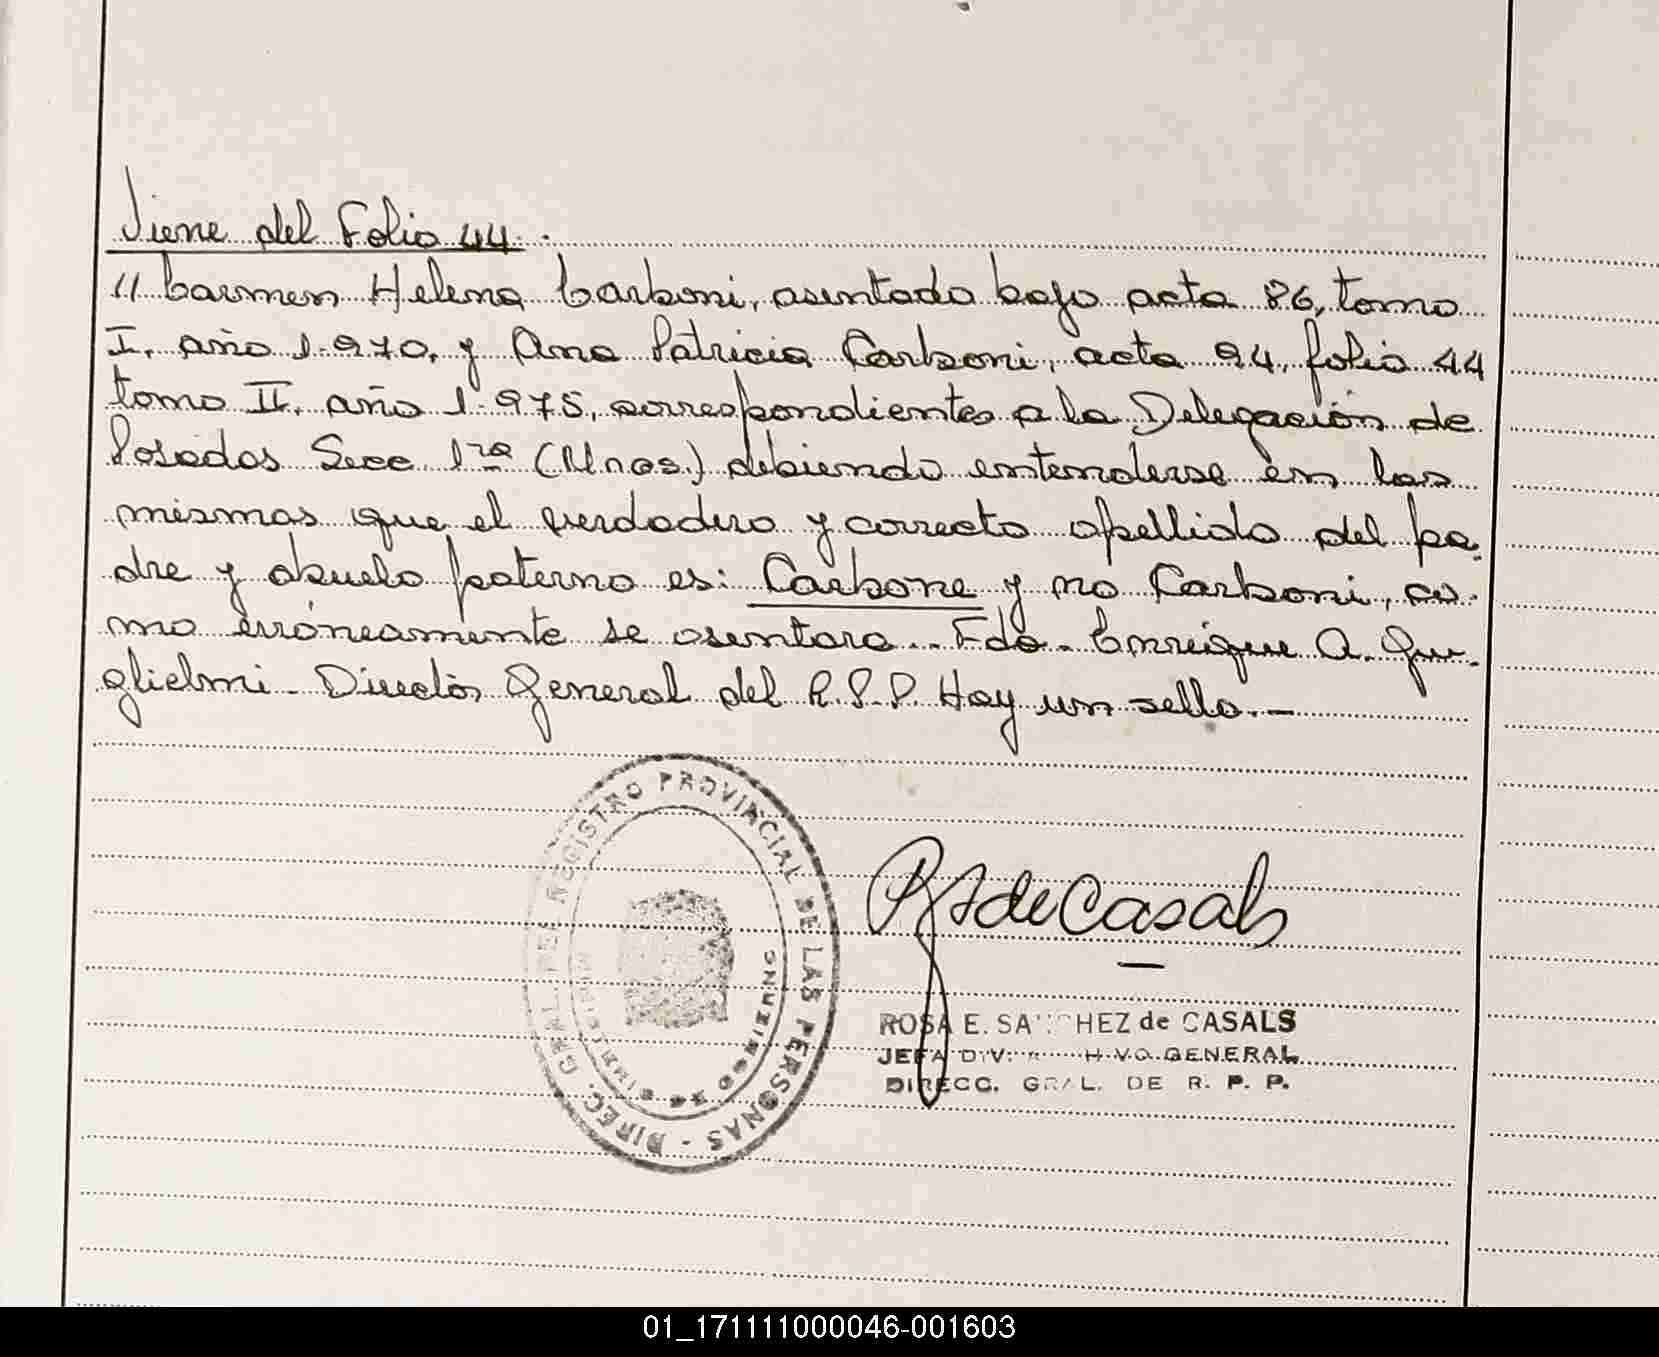 Viene del Folio 44.
// Carmen Helena Carboni, asentado bajo acta 86, tomo
I, año 1.970, y Ana Patricia Carboni, acta 94, folio 44
tomo II, año 1.975, correspondientes a la Delegación de
Posadas Secc 1ra (Mnes.) debiendo entenderse en las
mismas que el verdadero y correcto apellido del pa-
dre y abuelo paterno es: Carbone y no Carboni, co-
mo erróneamente se asentara.- Fdo. Enrique A. Gu-
glielmi - Director General del R.P.P. Hay un sello.-
DIREC. GRAL. DEL REGISTRO PROVINCIAL DE LAS PERSONAS -
RS de Casals
ROSA E. SANCHEZ de CASALS
JEFA DIV. ARCHIVO GENERAL
DIRECC. GRAL. DE R. P. P.
01_171111000046-001603